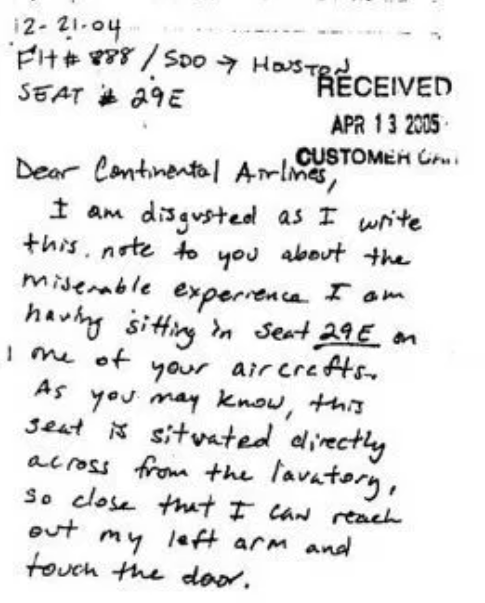 12-21-04
Flt# 888 / SDO → HOUSTON
SEAT # 29E
RECEIVED
APR 13 2005
CUSTOMER
Dear Continental Airlines,
I am disgusted as I write
this note to you about the
miserable experience I am
having sitting in seat 29E on
one of your aircrafts.
As you may know, this
seat is situated directly
across from the lavatory,
so close that I can reach
out my left arm and
touch the door.